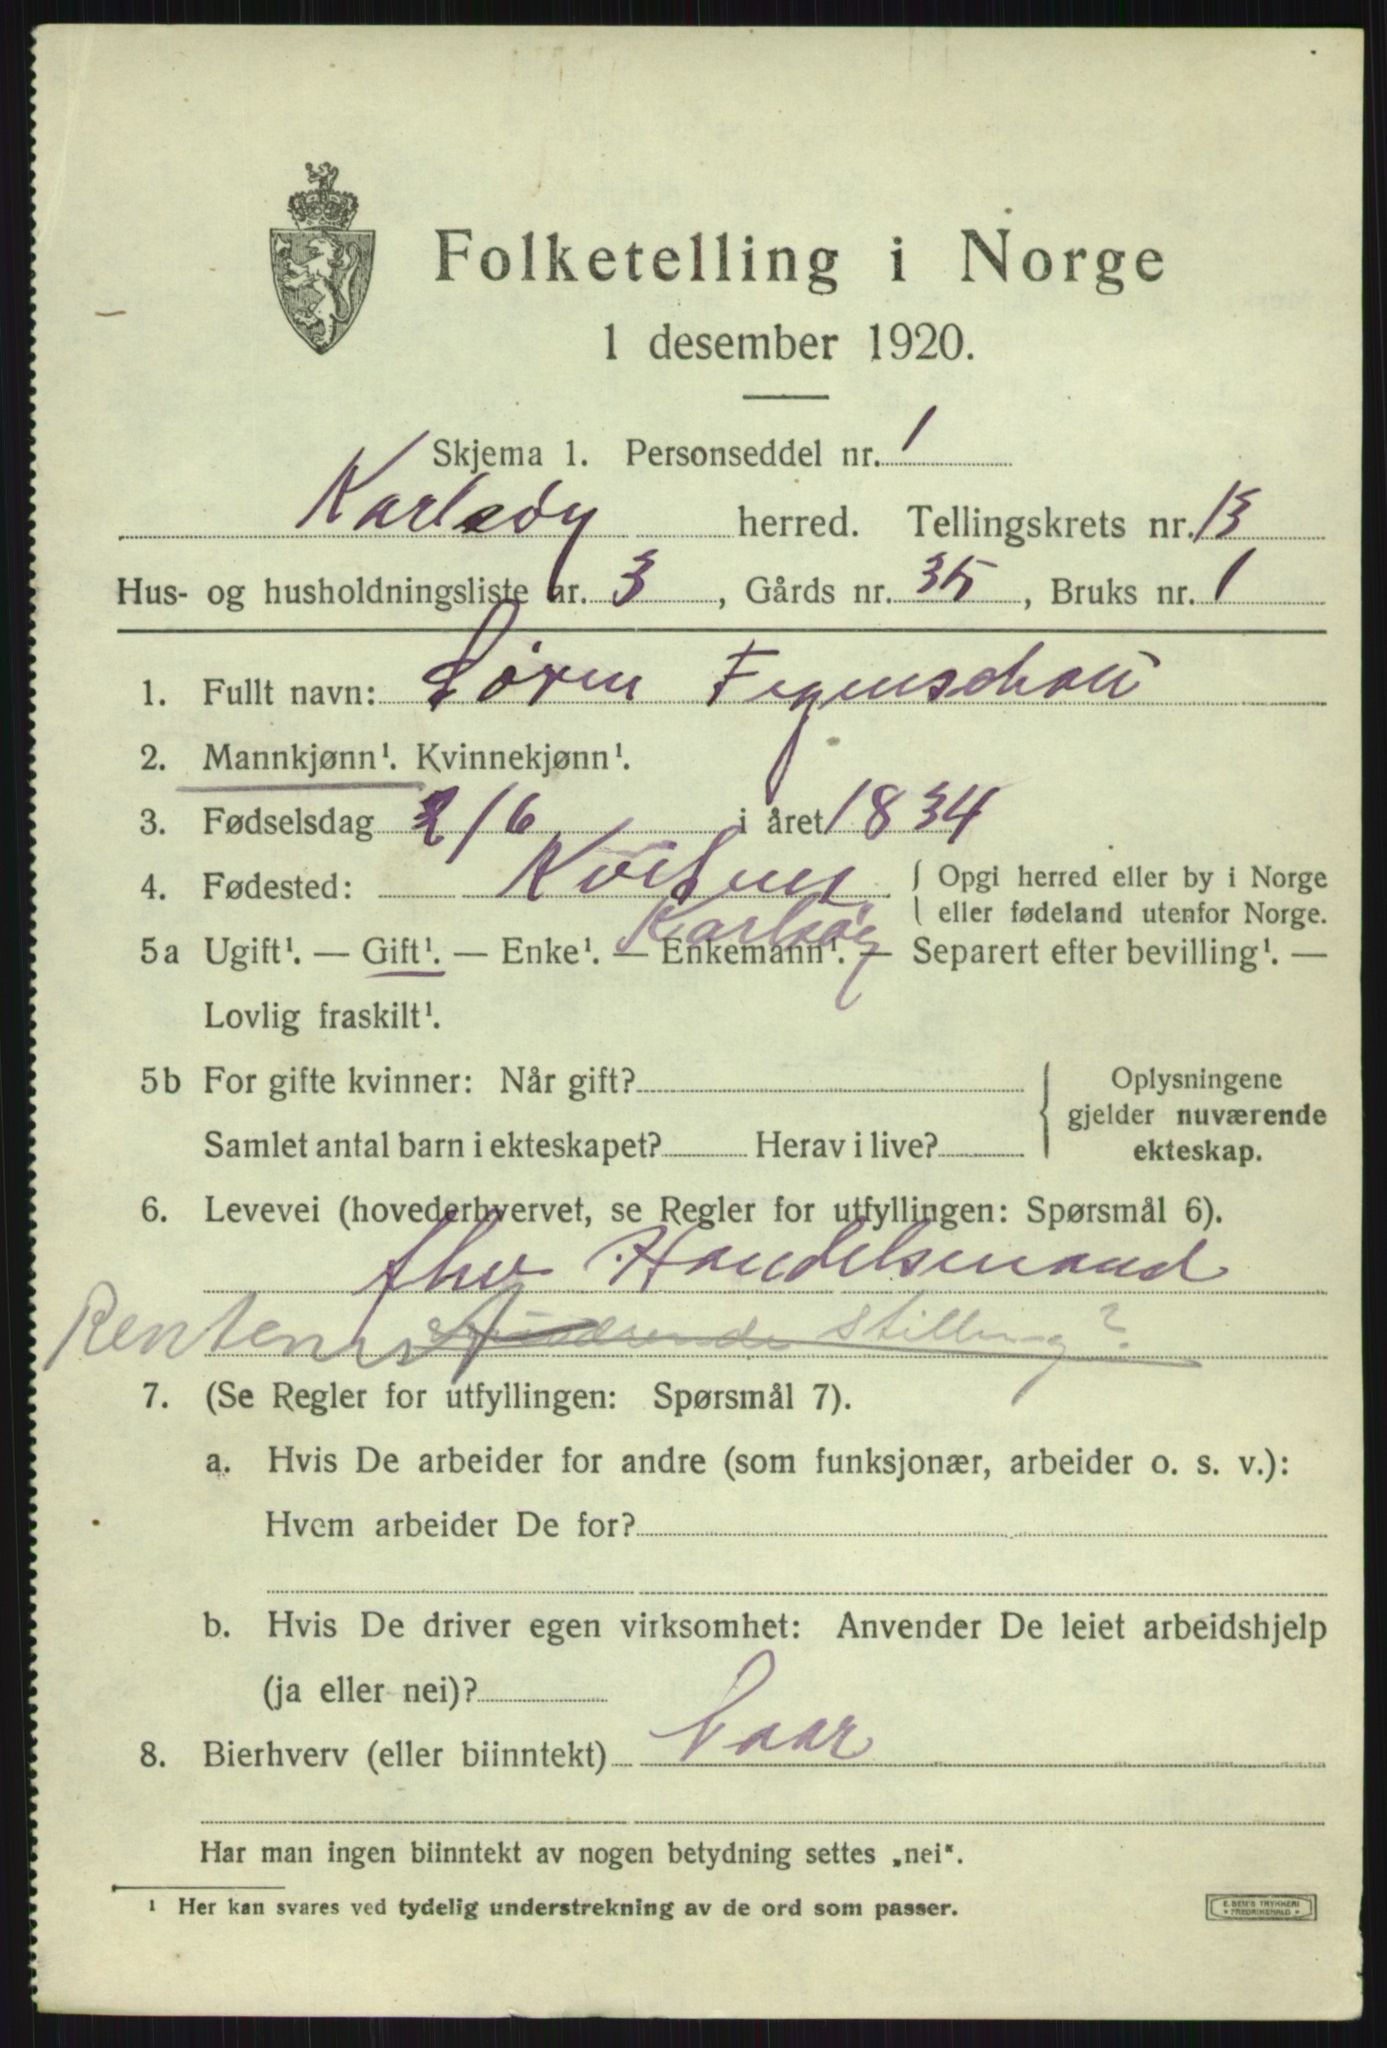 Folketelling i Norge
1 desember 1920.
Skjema 1. Personseddel nr. 1
Karlsøy herred. Tellingskrets nr. 13
Hus- og husholdningsliste nr. 3, Gårds nr. 35, Bruks nr. 1
1. Fullt navn: Søren Figenschau
2. Mannkjønn¹. Kvinnekjønn¹.
3. Fødselsdag 2/6 i året 1834
4. Fødested: { Opgi herred eller by i Norge
eller fødeland utenfor Norge.
Karlsøy
5a Ugift¹. — Gift¹. — Enke¹. — Enkemann¹. — Separert efter bevilling¹. —
Lovlig fraskilt¹.
5b For gifte kvinner: Når gift? { Oplysningene
gjelder nuværende
Samlet antal barn i ekteskapet? Herav i live? ekteskap.
6. Levevei (hovederhvervet, se Regler for utfyllingen: Spørsmål 6).
fhv Handelsmand
Rentenist nuværende stilling?
7. (Se Regler for utfyllingen: Spørsmål 7).
a. Hvis De arbeider for andre (som funksjonær, arbeider o. s. v.):
Hvem arbeider De for?
b. Hvis De driver egen virksomhet: Anvender De leiet arbeidshjelp
(ja eller nei)?
8. Bierhverv (eller biinntekt)
Har man ingen biinntekt av nogen betydning settes „nei".
¹ Her kan svares ved tydelig understrekning av de ord som passer.
E. SEM'S TRYKKERI
* FREDRIKSHALD *